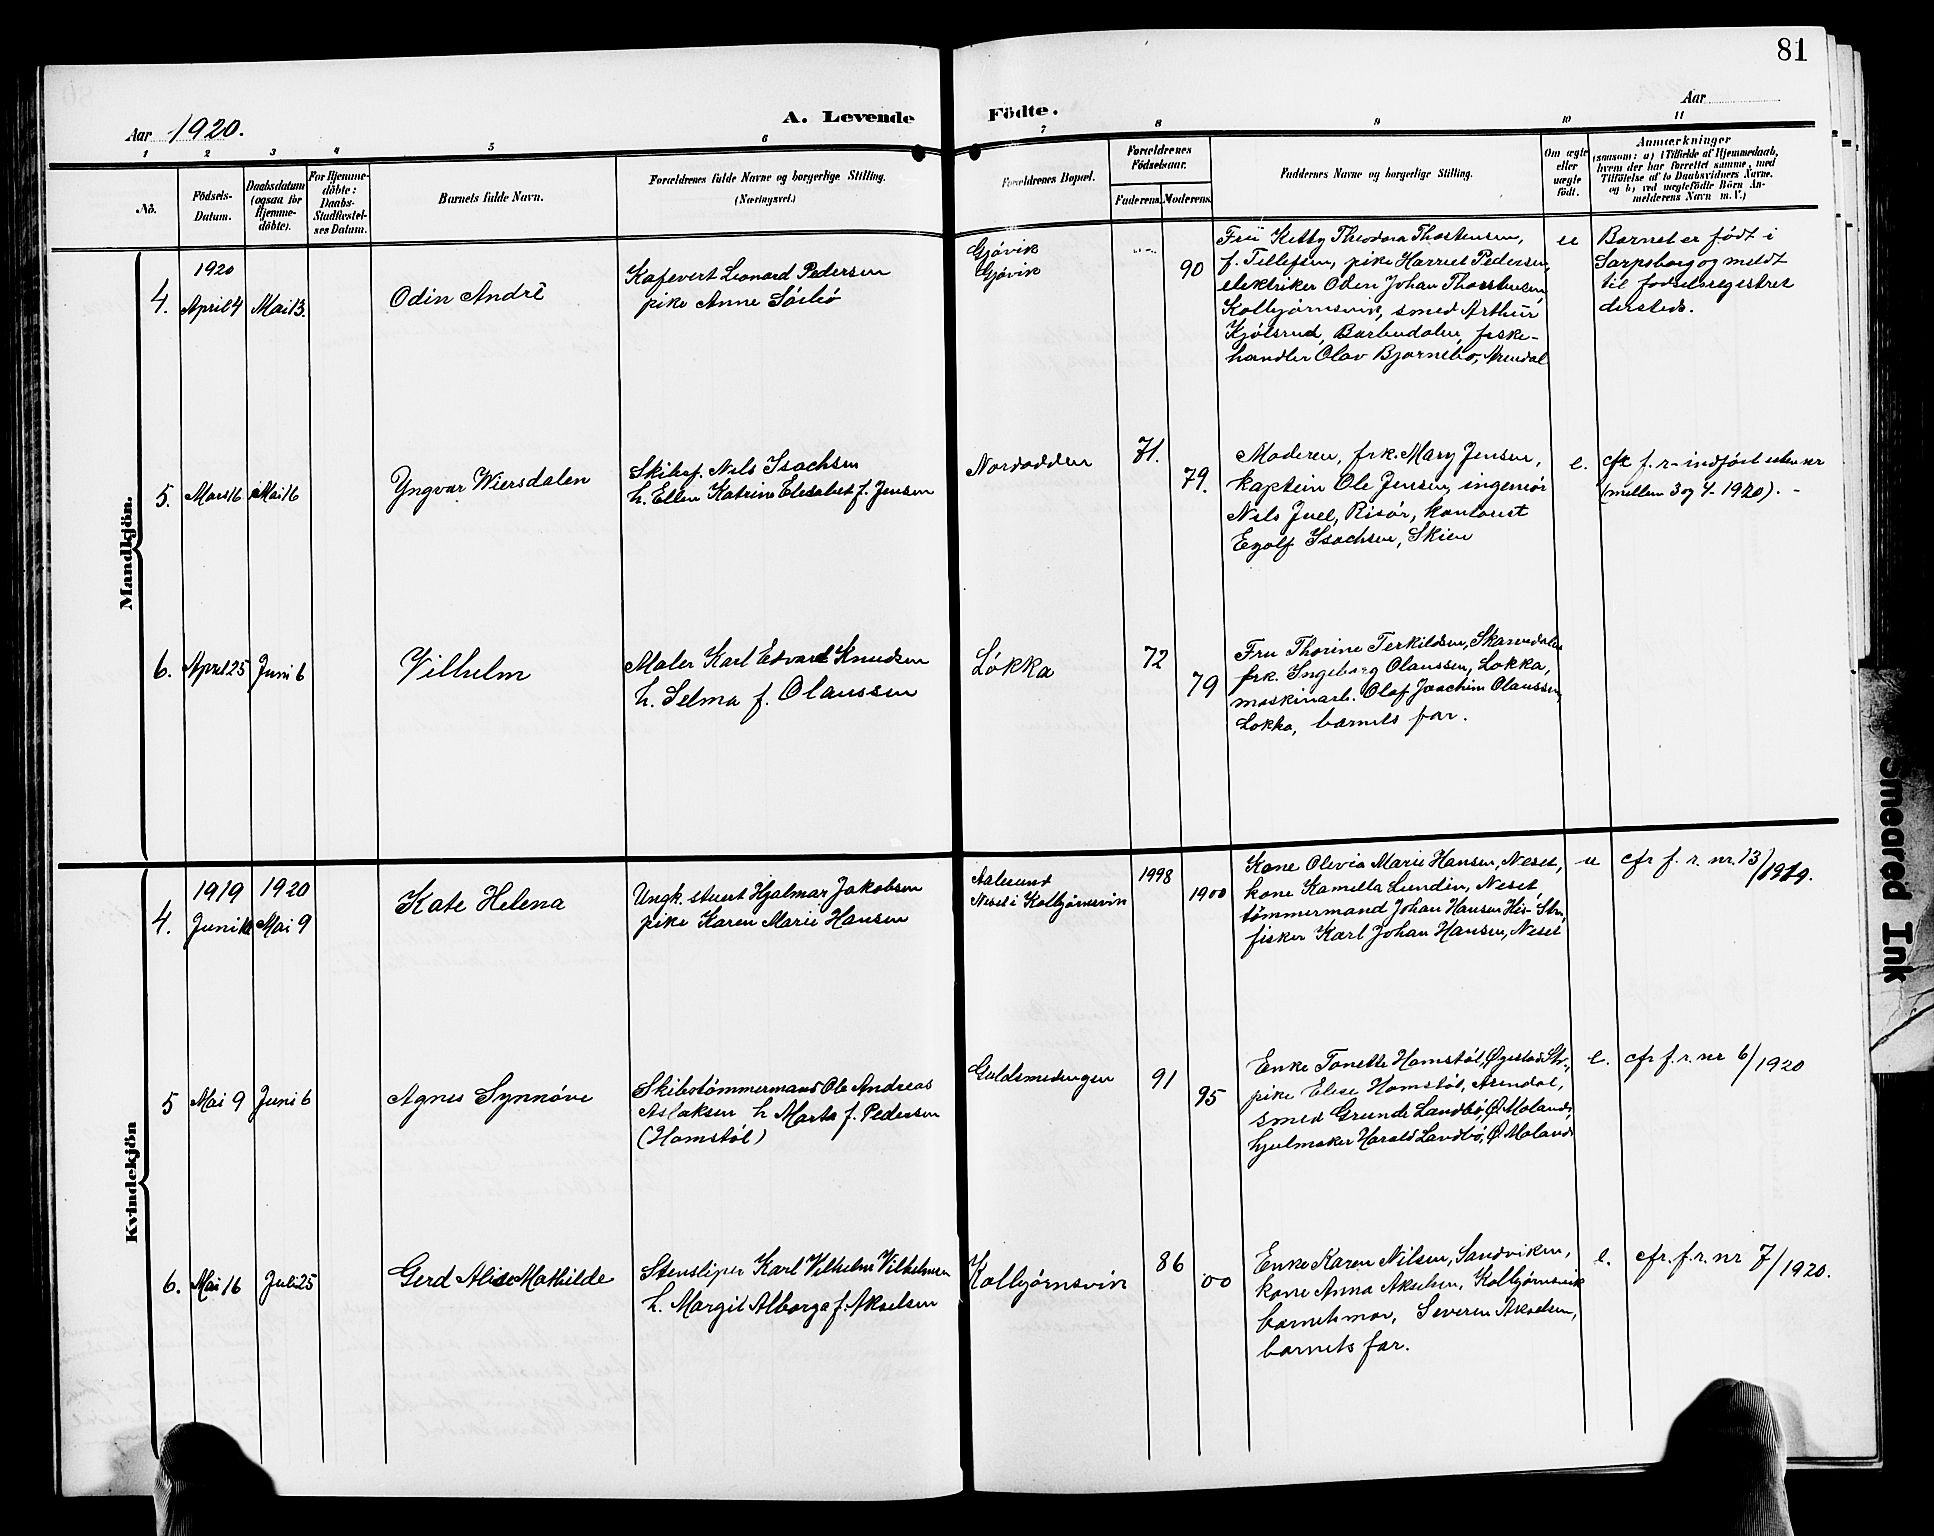 81
Aar 1920.
A. Levende
Födte.
Aar
1 2 3 4 5 6 7 8 9 10 11
No.
Födsels-
Datum.
Daabsdatum
(ogsaa for
Hjemme-
döbte).
For Hjemme-
döbte:
Daabs-
Stadfæstel-
ses Datum.
Barnets fulde Navn.
Forældrenes fulde Navne og borgerlige Stilling.
(Næringsvei.)
Forældrenes Bopæl.
Forældrenes
Födselsaar.
Faderens.
Moderens.
Faddernes Navne og borgerlige Stilling.
Om ægte
eller
uægte
født.
Anmærkninger
(saasom: a) i Tilfælde af Hjemmedaab,
hvem der har forrettet samme, med
Tilføielse af to Daabsvidners Navne.
og b) ved uægtefødte Börn An-
melderens Navn m. V.)
Mandkjön.
4.
1920
April 4
Mai 13.
Odin André
Kafevert Leonard Pedersen
pike Anne Sörbö
Gjövik
Gjövik
90
Fru Kitty Theodora Thorstensen,
f. Tellefsen, pike Harriet Pedersen,
elektriker Odin Johan Thorstensen,
Kolbjörnsvik, smed Arthur
Kjölsrud, Barbudalen, fiske-
handler Olav Bjørnebo, Arendal
u
Barnet er født i
Sarpsborg og meldt
til fødselsregistret
dersteds.
5.
Mars 16
Mai 16
Yngvar Wiersdalen
Skibsf. Nils Isachsen
h. Ellen Katrine Elisabet f. Jensen
Nordodden
71.
79.
Moderen, frk. Mary Jensen,
kaptein Ole Jensen, ingeniør
Nils Juel, Risör, kontorist
Egolf Isachsen, Skien
e.
cfr f. r. indført uten nr
(mellem 3 og 4 - 1920). -
6.
April 25
Juni 6
Vilhelm
Maler Karl Edvard Knudsen
h. Selma f. Olaussen
Lökka
72
79
Fru Thorine Terkildsen, Skarvedalen
frk. Ingeborg Olaussen, Lokka,
maskinarb. Olaf Joachim Olaussen,
Lokka, barnets far.
Kvindekjön
4.
1919
Juni
1920
Mai 9
Kate Helena
Ungk. stuert Hjalmar Jakobsen
pike Karen Marie Hansen
Aalesund
Neset i Kolbjørnsvik
1998
1900
Kone Olevia Marie Hansen, Neset,
kone Kamilla Lundin, Neset,
tömmermand Johan Hansen His-Str,
fisker Karl Johan Hansen, Neset
u
cfr f. r. nr. 13/1919.
5
Mai 9
Juni 6
Agnes Synnöve
Skibstömmermand Ole Andreas
Aslaksen h Marta f. Pedersen
(Homstöl)
Guldsmedengen
91
95
Enke Tonette Homstöl, Øyestad Str.,
pike Elise Homstöl, Arendal,
smed Grunde Landbö, Ø. Moland,
hjulmaker Harald Landbö, Ø Moland
e.
cfr f. r. nr 6/1920
6.
Mai 16
Juli 25
Gerd Alise Mathilde
Stensliper Karl Vilhelm Vilhelmsen
h. Margit Alborga f. Akselsen
Kolbjörnsvik
86
00
Enke Karen Nilsen, Sandviken,
kone Anna Akselsen, Kolbjørnsvik
barnets mor, Severin Akselsen,
barnets far.
e.
cfr. f. r. nr 7/1920.
Smeared Ink